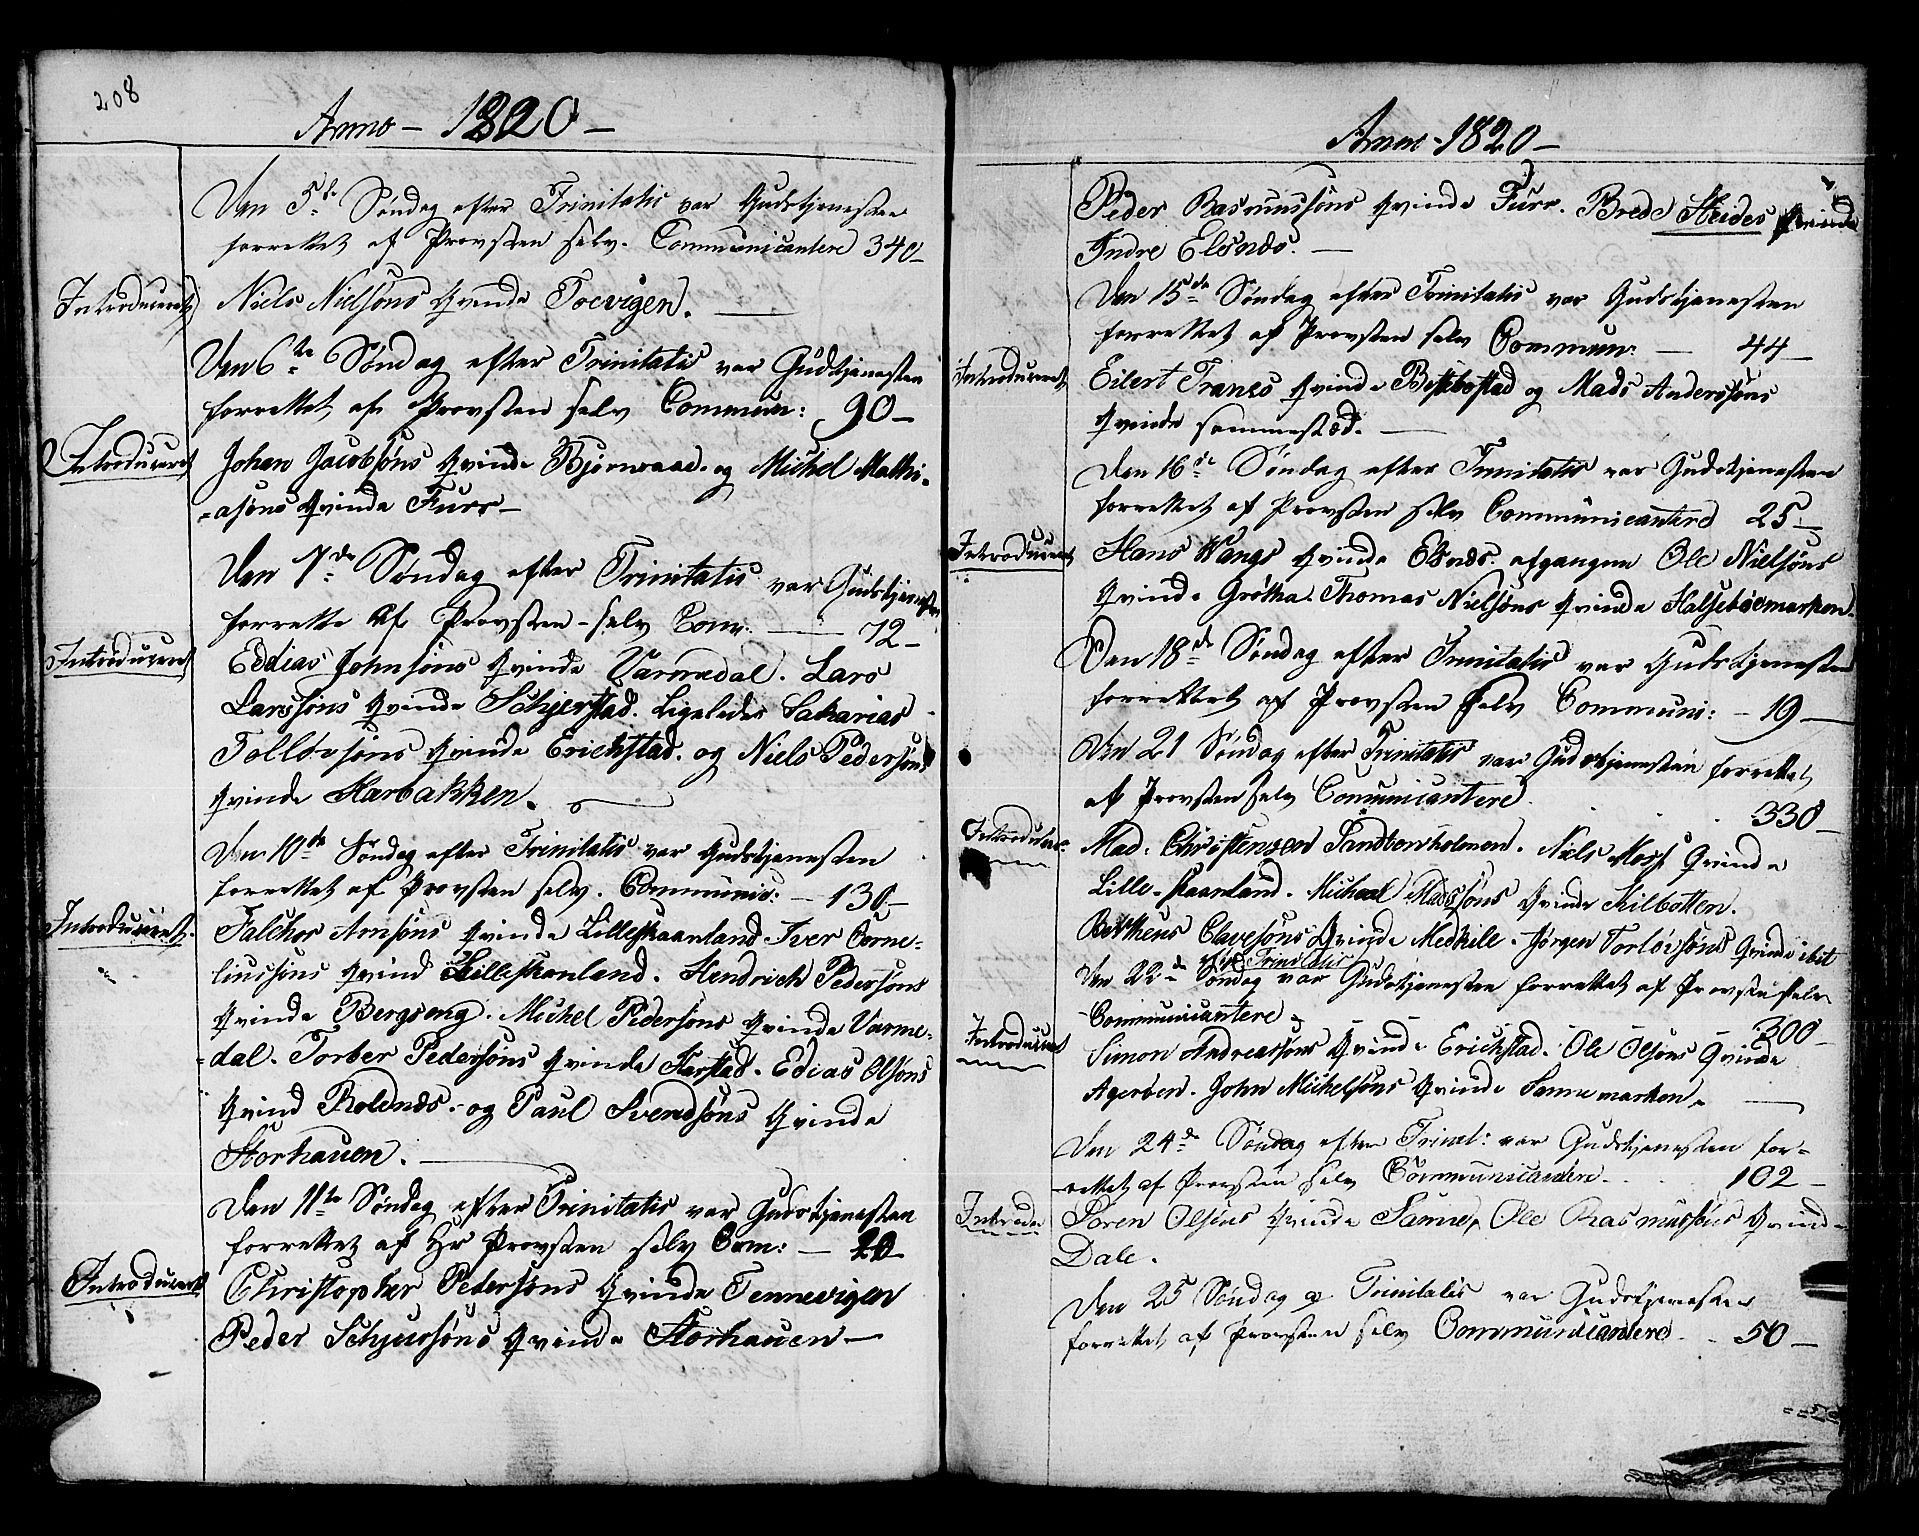 208
Anno - 1820 -
Den 5te Søndag efter Trinitatis var Gudstjenesten
forrettet af Provsten selv. Communicantere 340 -
Introduceret Niels Nielsøns Qvinde Toevigen. -
Den 6te Søndag efter Trinitatis var Gudstjenesten
forrettet af Provsten selv Commun: 90 -
Introduceret Johan Jacobsøns Qvinde Bjørnraae. og Michel Mathi-
-asøns Qvinde Furr -
Den 7de Søndag efter Trinitatis var Gudstjenesten
forrette af Provsten - selv Com: - 72 -
Introduceret Eddias Johnsøns Qvinde Varmedal. Lars
Larssøns Qvinde Schjerstad. Ligeledes Sakarias
Tolløvsøns Qvinde Erichstad. og Niels Pedersøns
Qvinde Harbakken.
Den 10de Søndag efter Trinitatis var Gudstjenesten
forrettet af Provsten selv. Communic: - 130 -
Introduceret Falchor Arnsøns Qvinde Lilleskaanland Iver Corne-
liussøns Qvind Lilleskanland. Hendrich Pedersøns
Qvinde Bergseng. Michel Pedersøns Qvinde Varme-
-dal. Torber Pedersøns Qvinde Harstad. Edias Olsøns
Qvind Roldnæs. og Paul Svendsøns Qvinde
Storhauen. -
Den 11te Søndag efter Trinitatis var Gudstjenesten
forrettet af Hr Provsten selv Com: - 20
Introduceret Christopher Pedersøns Qvinde Tennevigen
Peder Schjursøns Qvinde Storhauen -
Anno - 1820 -
Peder Rasmussøns Qvinde Furr. Brede Heides Qvinde
Indre Elsnæs. -
Den 15de Søndag efter Trinitatis var Gudstjenesten
forrettet af Provsten selv Commun: - 44 -
Introduceret Eilert Tranes Qvinde og Mads Anderssøns
Qvinde sammestæd. -
Den 16de Søndag efter Trinitatis var Gudstjenesten
forrettet af Provsten selv Communicantere 25 -
Introduceret Hans Wangs Qvinde Elsnæs. Ole Nielsøns
Qvinde Grøtha. Thomas Nielsøns Qvinde Halsebøemarken.
Den 18de Søndag efter Trinitatis var Gudstjenesten
forrettet af Provsten selv Communi: - 19 -
Den 21 Søndag efter Trinitatis var Gudstjenesten forrettet
af Provsten selv Comunicantere. 330 -
Mad. Christensen Sandtorvholmen. Niels Moss Qvinde
Lille-skaanland. Michael Madssøns Qvinde Kilbotten.
Bertheus Clavesøns Qvinde Medkille. Jørgen Torløvsøns Qvinde ibit
Den 22de Søndag eft Trinitatis var Gudstjenesten forrettet af Provsten selv
Communicantere 300 -
Introduceret Simon Andreassøns Qvinde Erichstad. Ole Olsøns Qvinde
Agerben. John Michelsøns Qvinde Sannemarken. -
Den 24de Søndag efter Trinit: var Gudstjenesten for-
-rettet af Provsten selv Communicanten. 102 -
Introdu Søren Olsøns Qvinde Sanne, Ole Rasmussøns Qvind-
Dale.
Den 25 Søndag e Trinitatis var Gudstjenesten
forrettet af Provsten selv Communicantere - 50 -